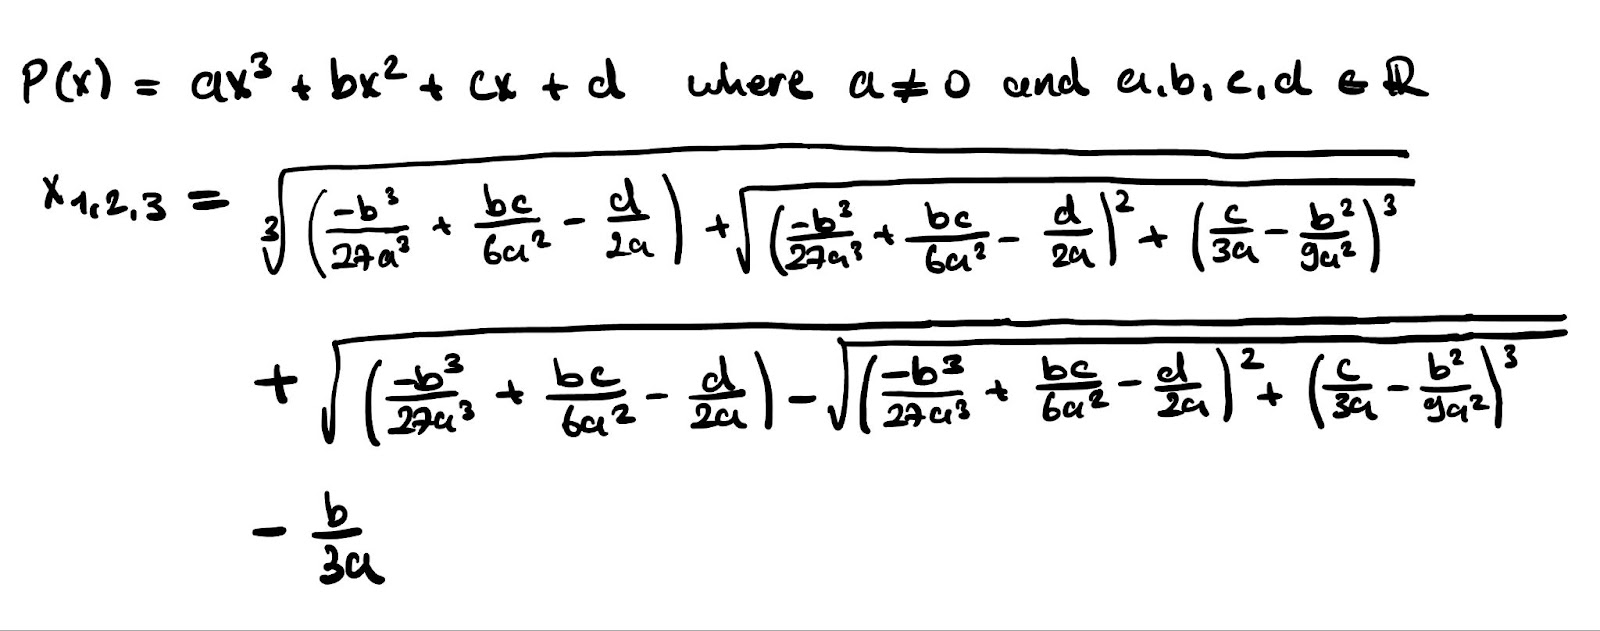 P(x) = ax³ + bx² + cx + d where a ≠ 0 and a,b,c,d ∈ ℝ
x₁,₂,₃ = ∛((-b³/27a³ + bc/6a² - d/2a) + √((-b³/27a³ + bc/6a² - d/2a)² + (c/3a - b²/9a²)³))
+ √((-b³/27a³ + bc/6a² - d/2a) - √((-b³/27a³ + bc/6a² - d/2a)² + (c/3a - b²/9a²)³))
- b/3a